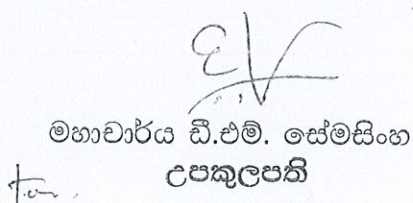 මහාචාර්ය ඩී.එම්. සේමසිංහ
උපකුලපති